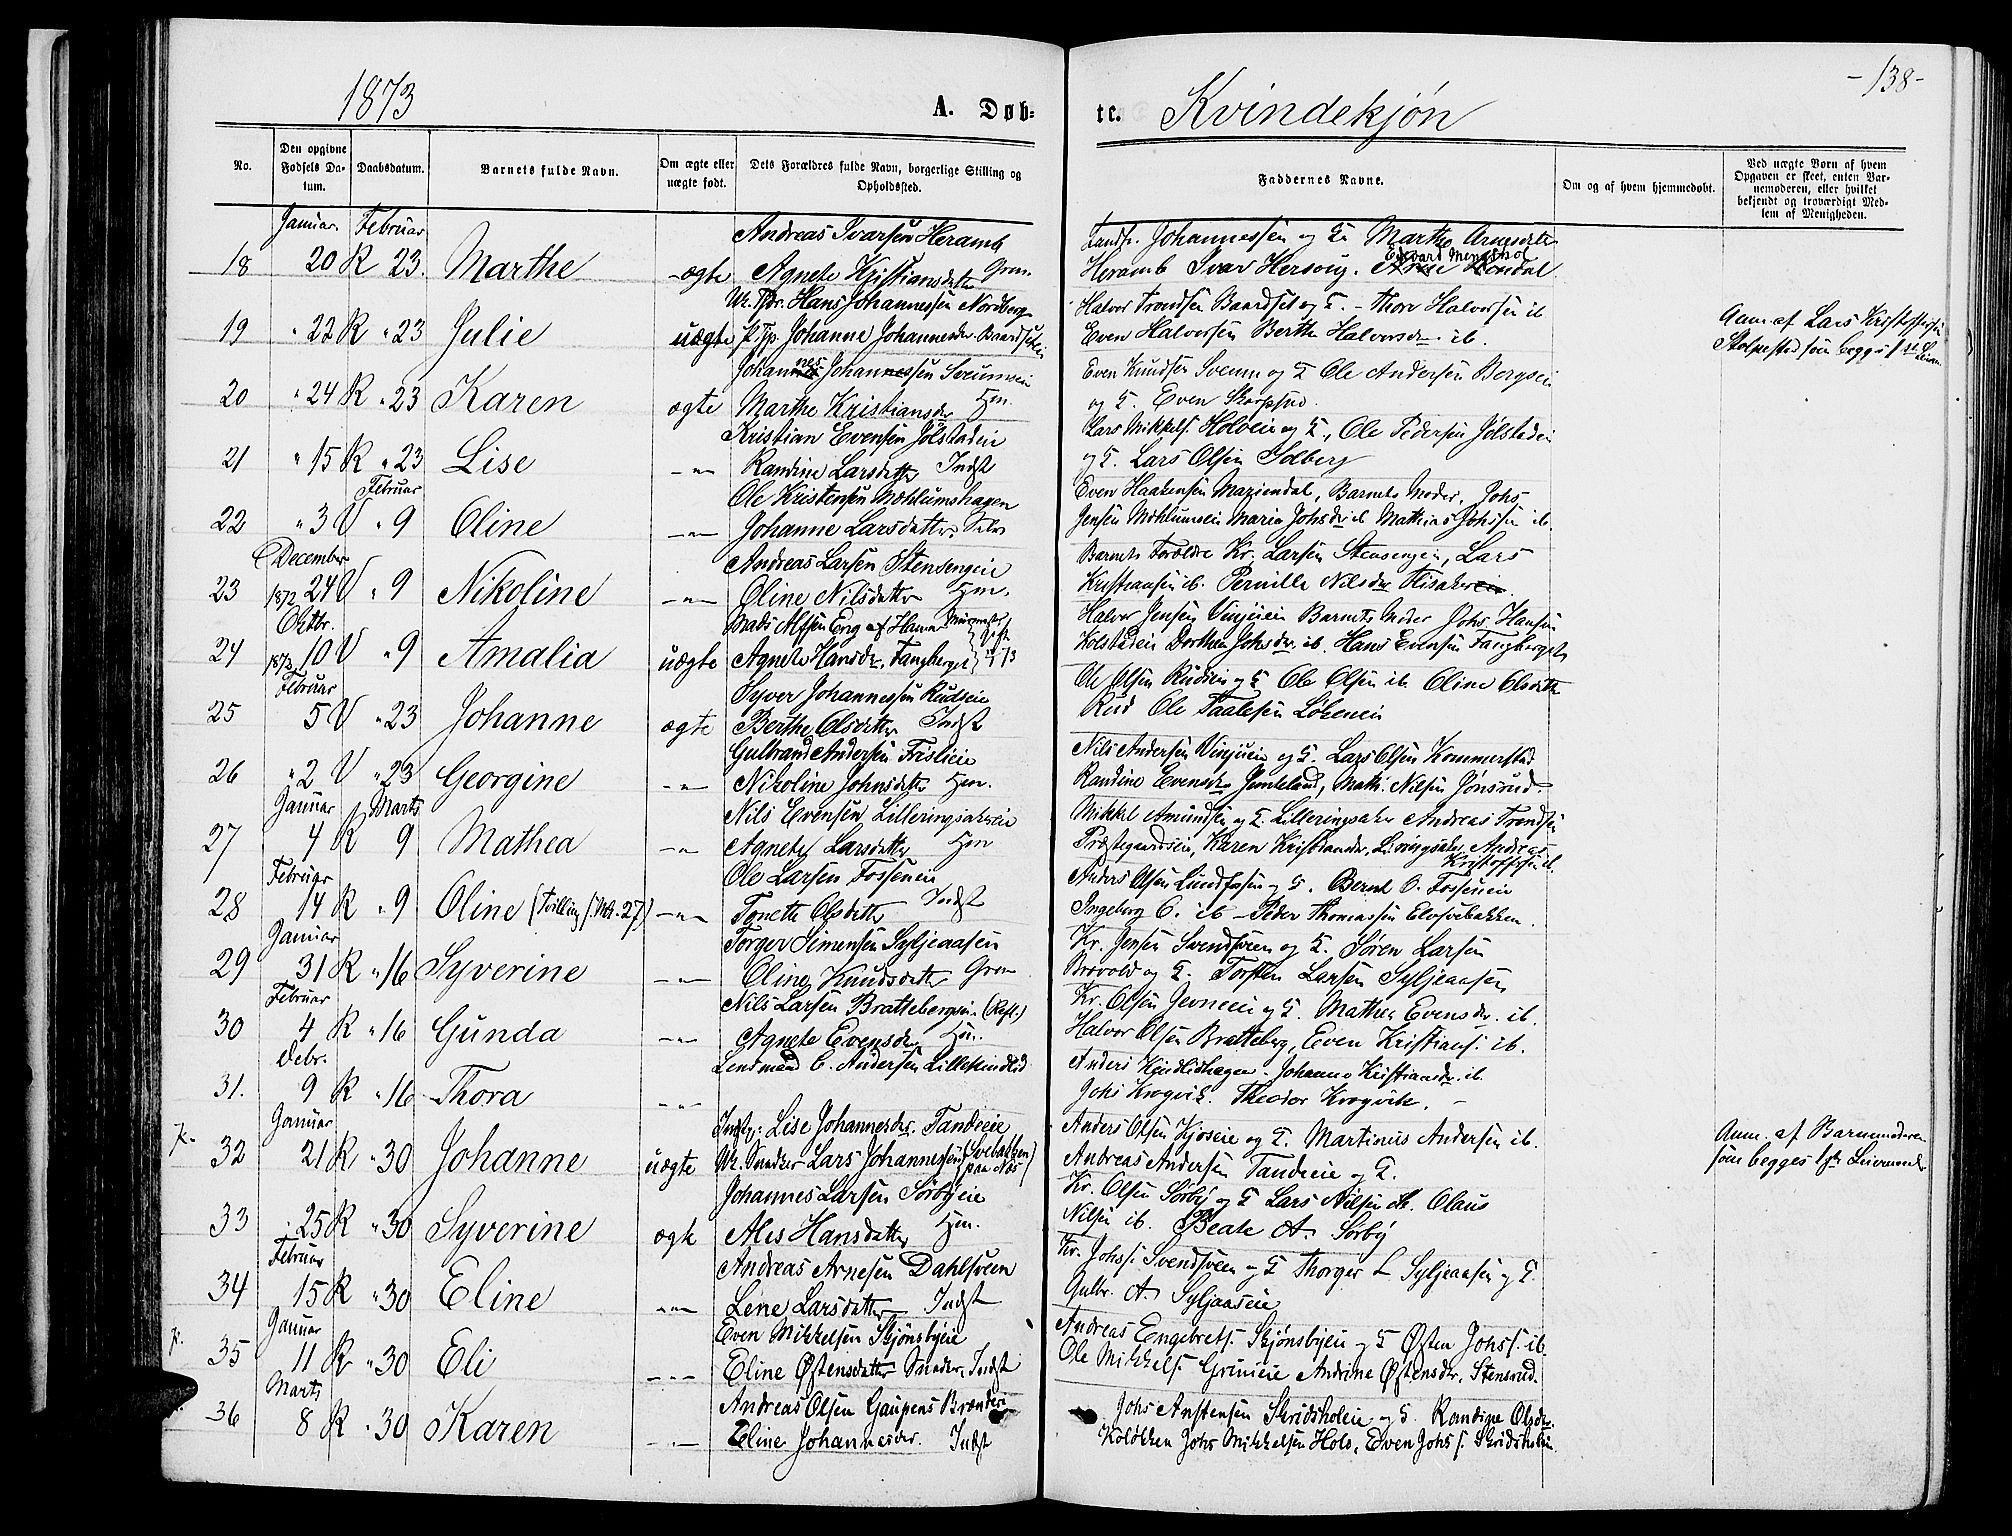 1873
A. Døb-
te. Kvindekjøn
-138-
No.
Den opgivne Fødsels Datum.
Daabsdatum.
Barnets fulde Navn.
Om ægte eller uægte født.
Dets Forældres fulde Navn, borgerlige Stilling og Opholdssted.
Faddernes Navne.
Om og af hvem hjemmedøbt.
Ved uægte Børn af hvem Opgaven er skeet, enten Barnemoderen, eller hvilket bekjendt og troværdigt Medlem af Menigheden.
Januar Februar Andreas Ivarsen Heramb Johannessen og Marthe Arnesdtr
18 20 R 23. Marthe ægte Agnete Kristiansdatter Grm. Heramb Ivar Hersoug.
Hans Johannessen Nordberg Halvor Trondsen Baardset og Thore Halvorsen ib
19 " 22 R " 23 Julie uægte Johanne Johannesdr Even Halvorsen Berthe Halvorsdr ib.
Aam. af Lars Kristoffersen
Stolpestad som begges
Johannes Johannessen Sveumeie Even Knudsen Sveum og Ole Andersen Bergseie
20 " 24 R " 23 Karen ægte Marthe Kristiansdr Hm. og Even Skarpsno.
Kristian Evensen Jølstadeie Lars Mikkels. Holveie og Ole Pedersen Jølstadeie
21 " 15 R " 23 Lise -"- Randine Larsdatter Indst Lars Olsen Solberg
Februar Ole Kristensen Mæhlumshagen Even Haakensen Maziendal, Barnets Moder, Johs
22 " 3 V " 9 Oline -"- Johanne Larsdatter. Jensen Mæhlumseie Maria Johsdr ib Mathias Johssen ib.
December Andreas Larsen Stensengeie Barnets Forældre Kr. Larsen Stensengeie, Lars
23 1872 24 V " 9 Nikoline -"- Oline Nilsdatter Hm. Kristiansen ib. Pernille Nilsdr
Oktbr. Mads Alfsen Eng af Hamar Halvor Jensen Vinjueie Barnets Moder Johs. Hansen
24 1872 10 V " 9 Amalia uægte Agnete Hansdr. Fangberget Holstadeie Dorthea Johsdr. ib. Hans Evensen Fangberget
Februar Syver Johannessen Rudseie Ole Olsen Rudeie og Ole Olsen ib Oline Olsdatter
25 5 V " 23 Johanne ægte Berthe Olsdatter Indst Rud Ole Taalesen Løkeneie
Gulbrand Andersen Frislieie Nils Andersen Vinjueie og Lars Olsen Kommerstad
26 " 2 V " 23 Georgine -"- Nikoline Johnsdatter Hm. Randine Evensdr Jemteland, Math. Nilsen Jønsrud.
Januar Marts Nils Evensen Lilleringsakereie Mikkel Amundsen og Lilleringsaker Andreas Trondsen
27 4 R 9 Mathea -"- Agnete Larsdatter Hm Præstegaardseie, Karen Kristiansdr. Andreas Kristoffersen ib.
Februar Ole Larsen Fosseneie Anders Olsen og Bernt O. Fosseneie
28 14 R " 9 Oline (Tvilling f. No. 27) -"- Tonette Olsdatter Indst Ingeborg O. ib - Peder Thomassen
Januar Torger Simensen Syljeaasen Kr. Jensen Svendsveen og Søren Larsen
29 31 R " 16 Syverine -"- Oline Knudsdatter Grm Brovold og Torsten Larsen Syljeaasen
Februar Nils Larsen Brattebergeie Kr. Olsen Jevneeie og Mathea Evensdr. ib.
30 4 R " 16 Gunda -"- Agnete Evensdr. Hm. Halvor Olsen Bratteberg, Even Kristians. ib.
Debr. Lensmand C. Andersen Lillekindlid Anders Kindlidhagen Johanne Kristiansdr. ib.
31. 9 R " 16 Thora -"- Johs Krogvik. Theodor Krogvik.
Januar Lise Johannesdr. Tandeeie Anders Olsen Kjoseie og Martinus Andersen ib.
32 21 R " 30 Johanne uægte Lars Johannessen paa Næs Andreas Andersen Tandeeie og
Anm. af Barnemoderen
som begges
Johannes Larsen Sørbyeie Kr. Olsen Sørby og Lars Nilsen ib. Olaus
33 " 25 R " 30 Syverine ægte Ales Hansdatter Hm. Nilsen ib. Beate A. Sørby
Februar Andreas Arnesen Dahlsveen Kr. Johs. Svendsveen og Thorger L Syljeaasen og
34 15 R " 30 Eline -"- Lene Larsdatter Indst Gulbr. A. Syljaaseie
Januar Even Mikkelsen Skjønsbyeie Andreas Engebrets. Skjønsbyeie og Østen Johs. ib.
35 11 R " 30 Eli -"- Eline Østensdatter Indst Ole Mikkels. Grimeie Andrine Østensdr. Stensrud.
Marts Andreas Olsen Gaupens Johs Anstensen Skridsholeie og Randine Olsdr.
36 8 R " 30 Karen -"- Eline Johannesdr. Indst Johs Mikkelsen Holo, Even Johs.